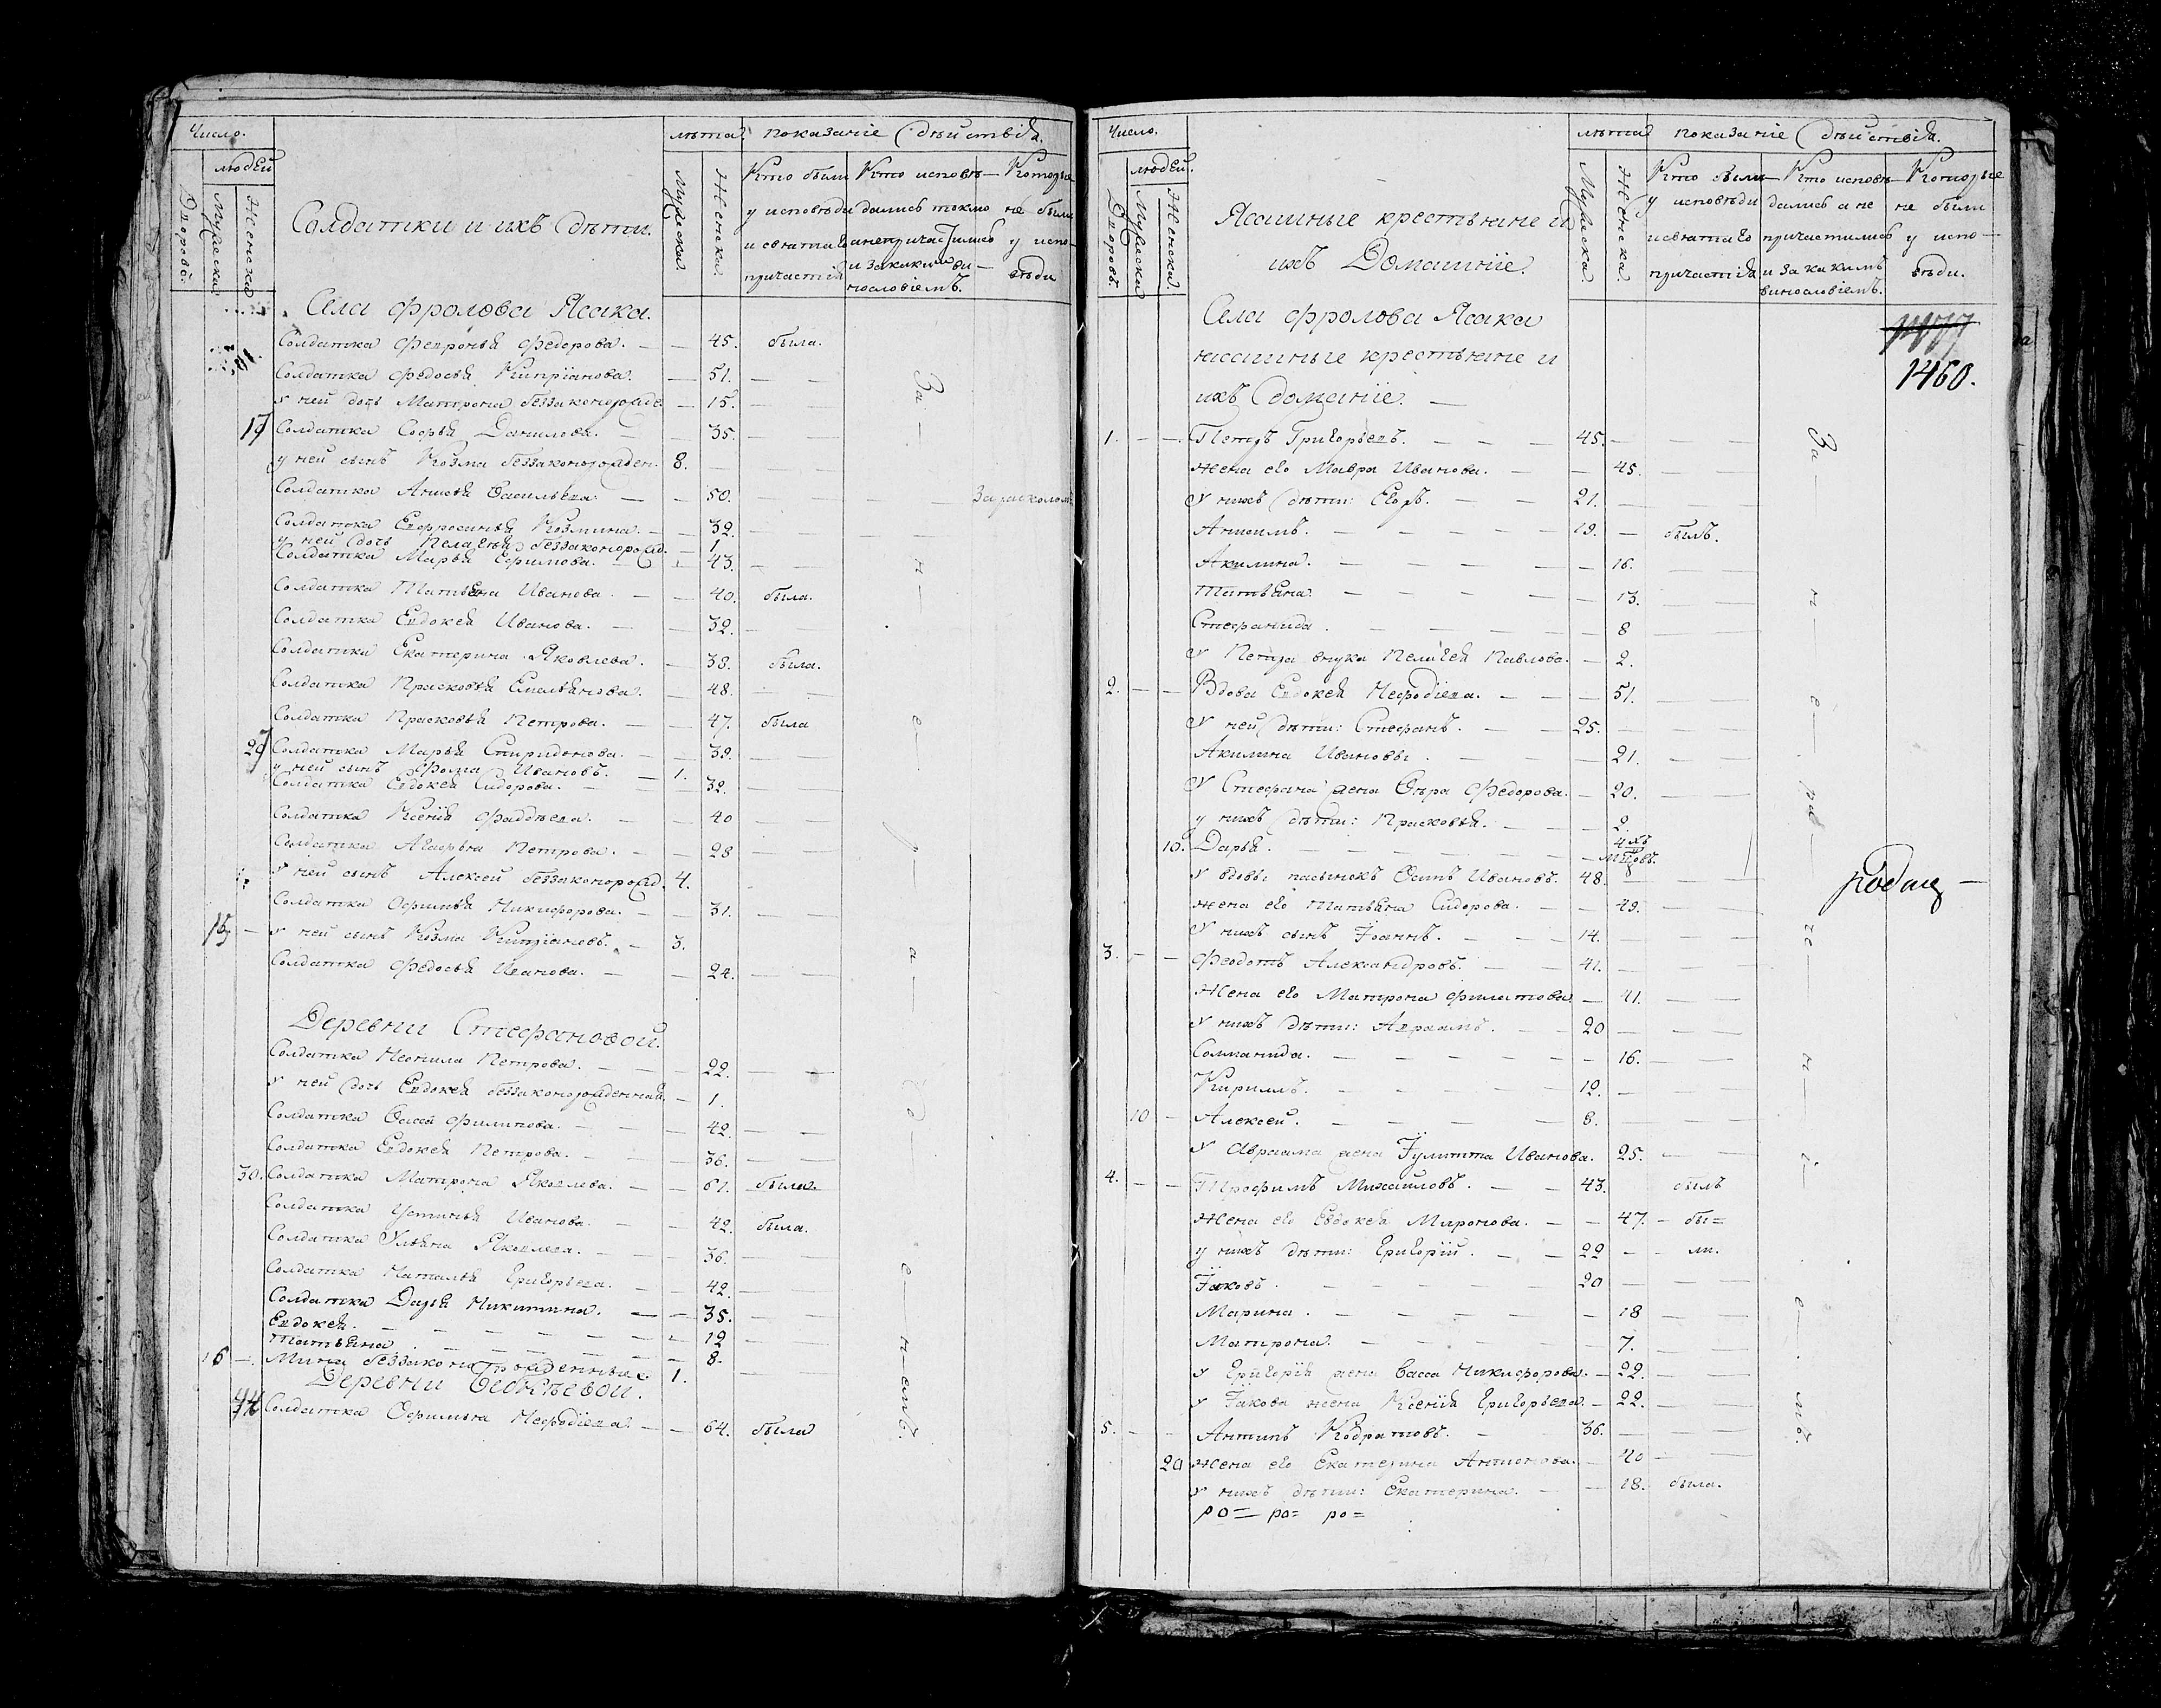 Число.
лѣта показанїе дѣйствїя.
людей
Дворовъ.
Мужеска
Женска
Солдатки и ихъ дѣти.
Мужеска.
Женска.
Кто были у исповѣди и святаго причастїя
Кто исповѣдались токмо а не причастились и за какимъ винословїемъ.
Которые не были у исповѣди
Села Фролова Ясака.
Солдатка Февронья Федорова. — — 45. была.
Солдатка Федосья Кипрїанова. — 51. — —
У ней дочь Матрона беззаконорожде. — 15. — —
17 Солдатка Софья Данилова. — — 35. — —
у ней сынъ Козма беззаконорожден. 8. — —
Солдатка Анисья Васильева. — — 50. — — — За расколомъ
Солдатка Евфросинья Козмина. — — 32. — —
у ней дочь Пелагея беззаконорожд. — 1
Солдатка Марья Ефимова. — — 43. — —
Солдатка Татьяна Иванова. — — 40. была.
Солдатка Евдокея Иванова. — — 32. — —
Солдатка Екатерина Яковлева. — 38. была.
Солдатка Прасковья Емельянова. — 48. — —
Солдатка Прасковья Петрова. — — 47. была
Солдатка Марья Спиридонова. — — 39. — —
у ней сынъ Фома Ивановъ. — 1.
Солдатка Евдокея Сидорова. — — 32. — —
Солдатка Ксенїя Фаддѣева. — — 40 — —
Солдатка Агафья Петрова. — — 28 — —
У ней сынъ Алексей беззаконорожд. 4.
Солдатка Офимья Никифорова. — 31. — —
У ней сынъ Козма Кипрїановъ. — 3.
Солдатка Федосья Иванова. — — 24. — —
Деревни Стефановой.
Солдатка Неонила Петрова. — — 22. — —
У ней дочь Евдокея беззаконорожденная. — 1.
Солдатка Васса Филипова. — — 42. — —
Солдатка Евдокея Петрова. — — 36. — —
30. Солдатка Матрона Яковлева. — — 61. была.
Солдатка Устинья Иванова. — — 42. была.
Солдатка Ульяна Яковлева. — — 36. — —
Солдатка Наталья Григорьева. — — 42. — —
Солдатка Дарья Никитина. — — 35. — —
Евдокея. — — — — 12 — —
Татьяна. — — — — 8.
16 — Мина беззаконорожденные 1. —
Солдатка Офимья Нефодїева. — — 64. была
За — н — е — р — а — д — е — н — емъ.
Число.
лѣта показанїе дѣйствїя.
людей.
Дворовъ.
Мужеска
Женска.
Ясашные крестьяне и
ихъ Домашнїе.
Мужеска
Женска.
Кто были у исповѣди и святаго причастїя
Кто исповѣдались а не причастились и за какимъ винословїемъ.
Которые не были у исповѣди.
Села Фролова Ясака
ясашные крестьяне и
ихъ домашнїе. —
1460.
1. — — Петръ Григорьевъ. — — — 45. — —
Жена его Мавра Иванова. — — 45. — —
У нихъ дѣти: Егоръ. — — 21. — —
Анисимъ. — — — — 19. — былъ.
Акилина. — — — — 16. — —
Татьяна. — — — — 13. — —
Стефанида. — — — — 8 — —
У Петра внука Пелагея Павлова. — 2. — —
2. — — Вдова Евдокея Нефодїева. — — — 51. — —
У ней дѣти: Стефанъ. — — 25. — —
Акилина Ивановы. — — — 21. — —
У Стефана жена Вѣра Федорова. — 20. — —
у нихъ дѣти: Прасковья. — — — 2.
10. Дарья. — — — — 4хъ мцовъ.
У вдовы пасынокъ Осипъ Ивановъ. 48. — —
Жена его Татьяна Сидорова. — — 49. — —
У нихъ сынъ Іоаннъ. — — 14. — —
3. — — Феодотъ Александровъ. — — 41. — —
Жена его Матрона Филатова. — 41. — —
У нихъ дѣти: Авраамъ. — — 20 — —
Соломанида. — — — — 16. — —
Кириллъ. — — — — 12. —
10 — Алексей. — — — — 8. — —
У Авраама жена Іулитта Иванова. 25. — —
4. — — Трофимъ Михайловъ. — — 43. былъ
Жена его Евдокея Миронова. — — 47. — бы=
у нихъ дѣти: Григорїй. — — 22 — — ли.
Іаковъ. — — — — 20 — —
Марина. — — — — 18 — —
Матрона. — — — — 7. — —
У Григорїя жена Васса Никифорова. — 22. — —
У Іакова жена Ксенїя Григорьева. — 22. — —
5. — — Антипъ Кодратовъ. — 36. — —
20 Жена его Екатерина Антонова. — 40 — —
У нихъ дѣти: Екатерина. — — 18. была.
ро= ро= ро=
За — н — е — ра — че — н — і — е — мъ.